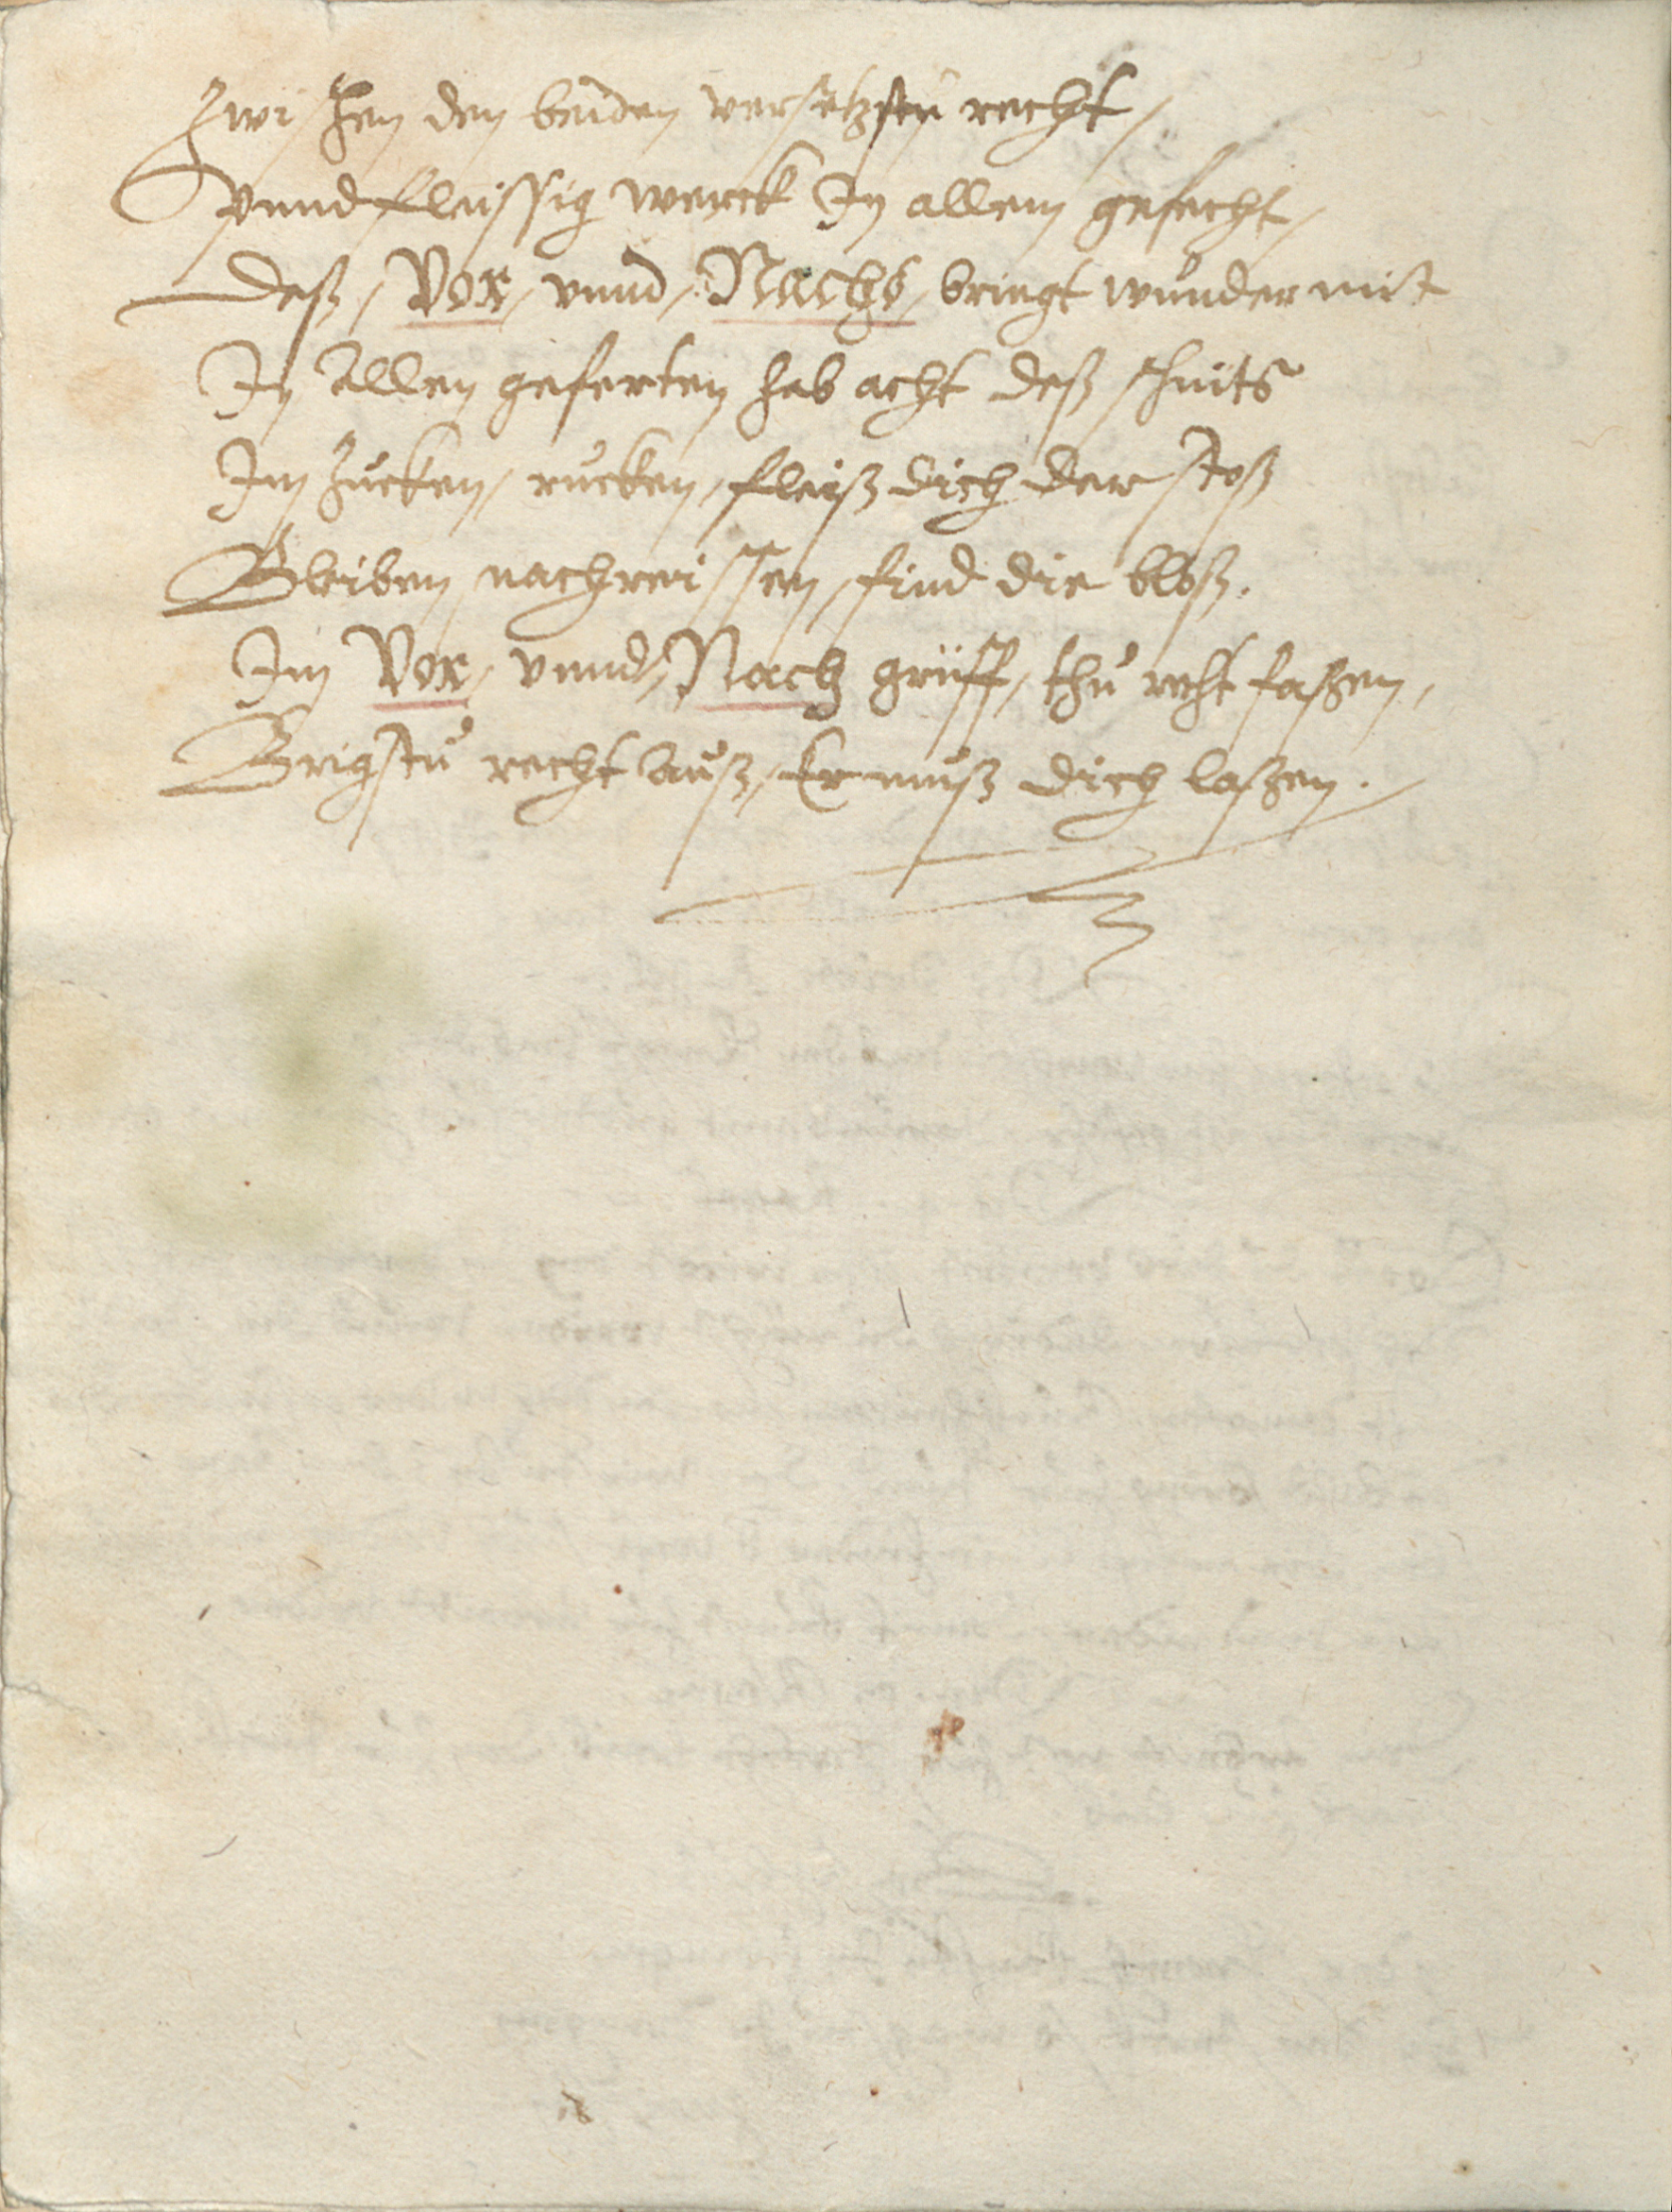 Zwischen den beiden versetzstu recht,
vnnd fleissig merck In allem gefecht,
Deß, Vor, vnnd, Nachs, bringt wunder mit
In Allen geferten hab acht deß schnits
Im Zucken, rucken, fleiß dich der stoß
Bleiben, nachreissen, find die bloß.
Im Vor, vnnd, Nach griff, thu recht faßen,
Brigstu recht auß, Er muß dich laßen.